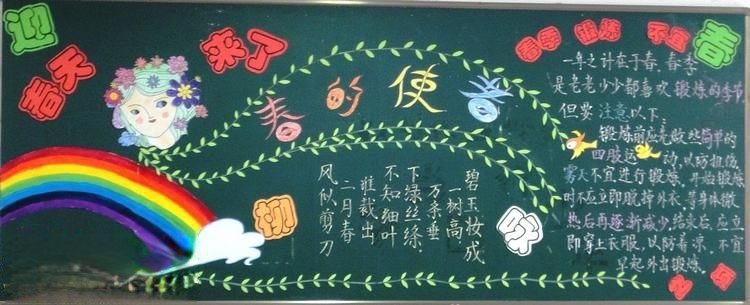 迎
春天
来了
春的使者
咏
柳
碧玉妆成
一树高
万条垂
下绿丝绦
不知细叶
谁裁出
二月春
风似剪刀
春季 锻炼 不宜
春
一年之计在于春，春季
是老老少少都喜欢锻炼的季节，
但要注意以下：
锻炼前应先做些简单的
四肢运动，以防扭伤。
雾天不宜进行锻炼。开始锻炼
时不应立即脱掉外衣，等身体微
热后再逐渐减少，结束后，应立
即穿上衣服，以防着凉，不宜
早起外出锻炼。